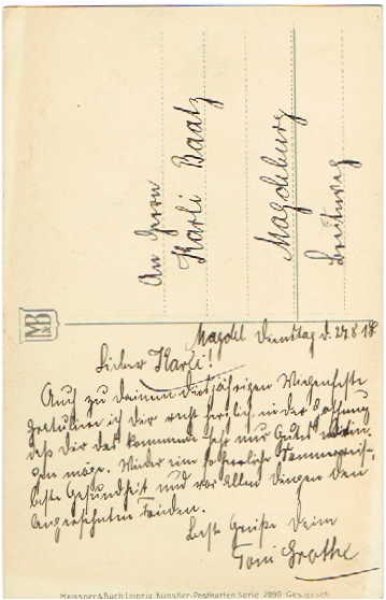 An Herrn
Karli Baatz
Magdeburg
Breiteweg
MB
Magdebg Dienstag d. 27.8.18
Lieber Karli!
Auch zu deinem diesjährigen Wiegenfeste
gratuliere ich dir recht herzlich in der Hoffnung
daß dir das kommende Jahr nur Gutes
gen möge. Wieder eine
beste Gesundheit und vor allen Dingen den
langersehnten Frieden.
Beste Grüße Deine
Toni Grothe
Meissner & Buch Leipzig Künstler-Postkarten Serie